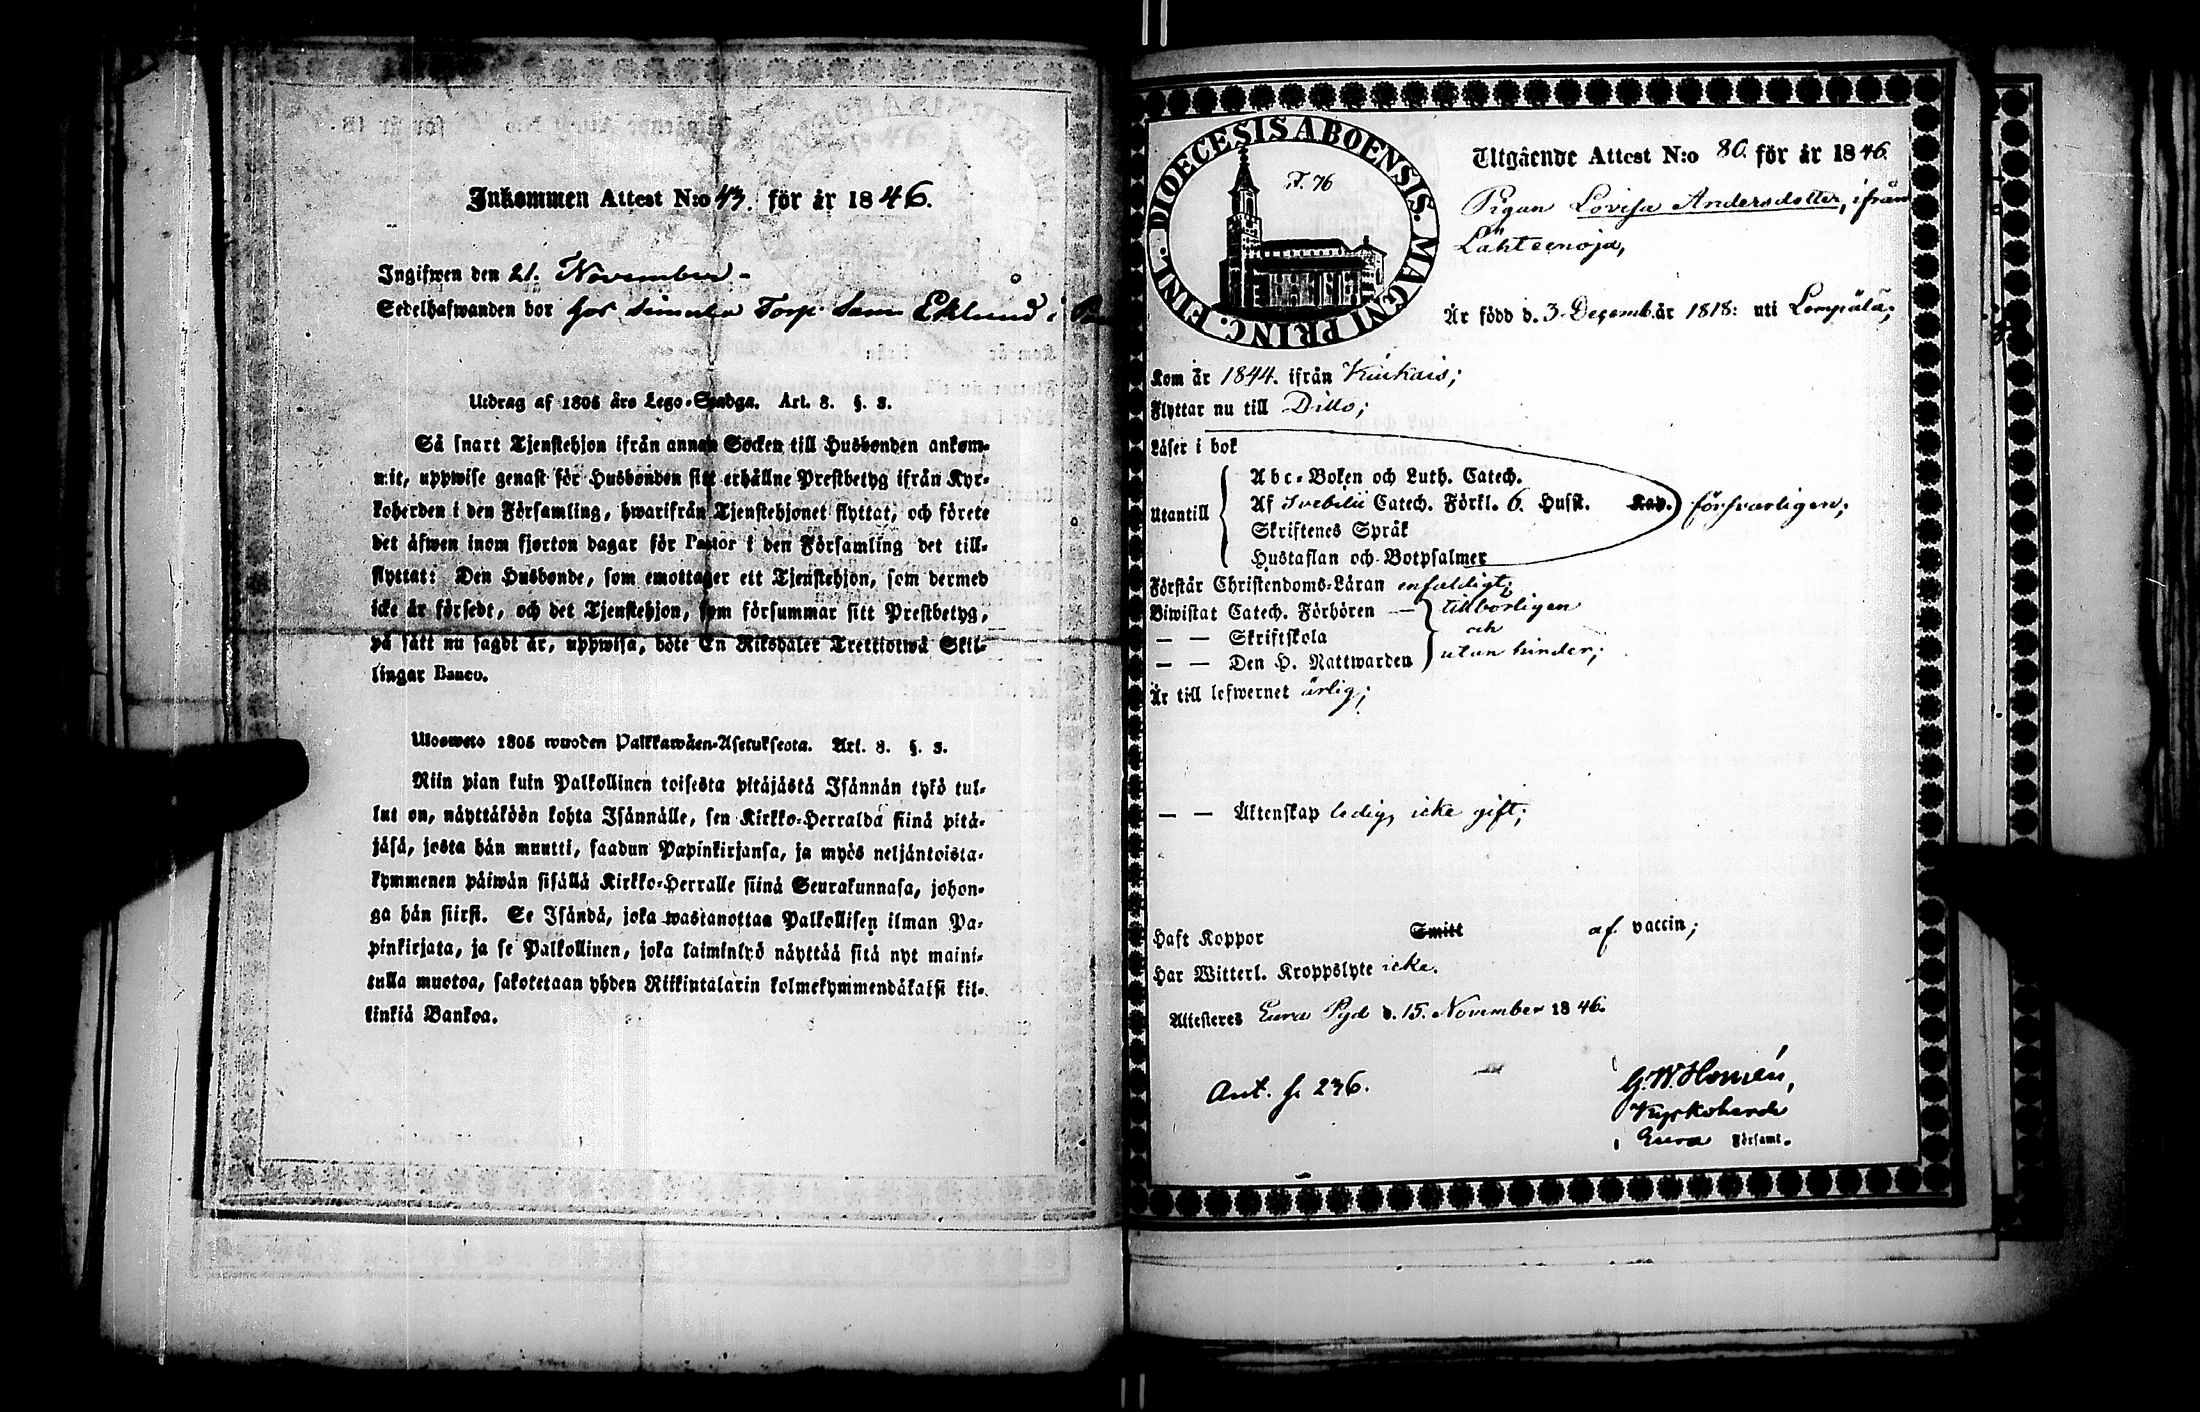 Inkommen Attest N:o 43. för år 1846.
Ingifwen den 21. November.
Sedelhafwanden bor hos Simula Torp. Sam Eklund i
Utdrag af 1805 års Lego-Stadga. Art. 8. §. 3.
Så snart Tjenstehjon ifrån annan Socken till Husbonden ankom-
mit, uppwise genast för Husbonden sitt erhållne Prestbetyg ifrån Kyr-
koherden i den Församling, hwarifrån Tjenstehjonet flyttat, och förete
det äfwen inom fjorton dagar för Pastor i den Församling det till-
flyttat: Den Husbonde, som emottager ett Tjenstehjon, som dermed
icke är försedt, och det Tjenstehjon, som försummar sitt Prestbetyg,
på sätt nu sagdt är, uppwisa, böte En Riksdaler Trettiotwå Skil-
lingar Banco.
Ulosweto 1805 wuoden Palkkawäen-Asetuksesta. Art. 8. §. 3.
Niin pian kuin Palkollinen toisesta pitäjästä Isännän tykö tul-
lut on, näyttäköön kohta Isännälle, sen Kirkko-Herralda siinä pitä-
jäsä, josta hän muutti, saadun Papinkirjansa, ja myös neljäntoista-
kymmenen päiwän sisällä Kirkko-Herralle siinä Seurakunnasa, johon-
ga hän siirsi. Se Isändä, joka wastanottaa Palkollisen ilman Pa-
pinkirjata, ja se Palkollinen, joka laiminlyö näyttää sitä nyt maini-
tulla muotoa, sakotetaan yhden Riikintalarin kolmekymmendäkaksi kil-
linkiä Bankoa.
DIOECESIS ABOENSIS. MAGNI PRINC. FINL.
T. 76
Utgående Attest N:o 80. för år 1846.
Pigan Lovisa Andersdotter, ifrån
Lähteenoja,
Är född d. 3. Decemb. år 1818: uti Lempälä;
Kom år 1844. ifrån Kiukais;
Flyttar nu till Ditto;
Läser i bok
Abc-Boken och Luth. Catech.
Utantill Af Svebelii Catech. Förkl. 6. Hufst. Kap. försvarligen;
Skriftenes Språk
Hustaflan och Botpsalmer
Förstår Christendoms-Läran enfaldigt;
Biwistat Catech. Förhören — tillbörligen
och
— — Skriftskola
— — Den H. Nattwarden utan hinder;
Är till lefwernet ärlig;
— — Äktenskap ledig, icke gift;
Haft Koppor Smitt af vaccin;
Har Witterl. Kroppslyte icke.
Attesteres Eura Pgd d. 15. November 1846.
Ant. f. 236.
G. W. Homén,
Kyrkoherde
i Eura Församl.